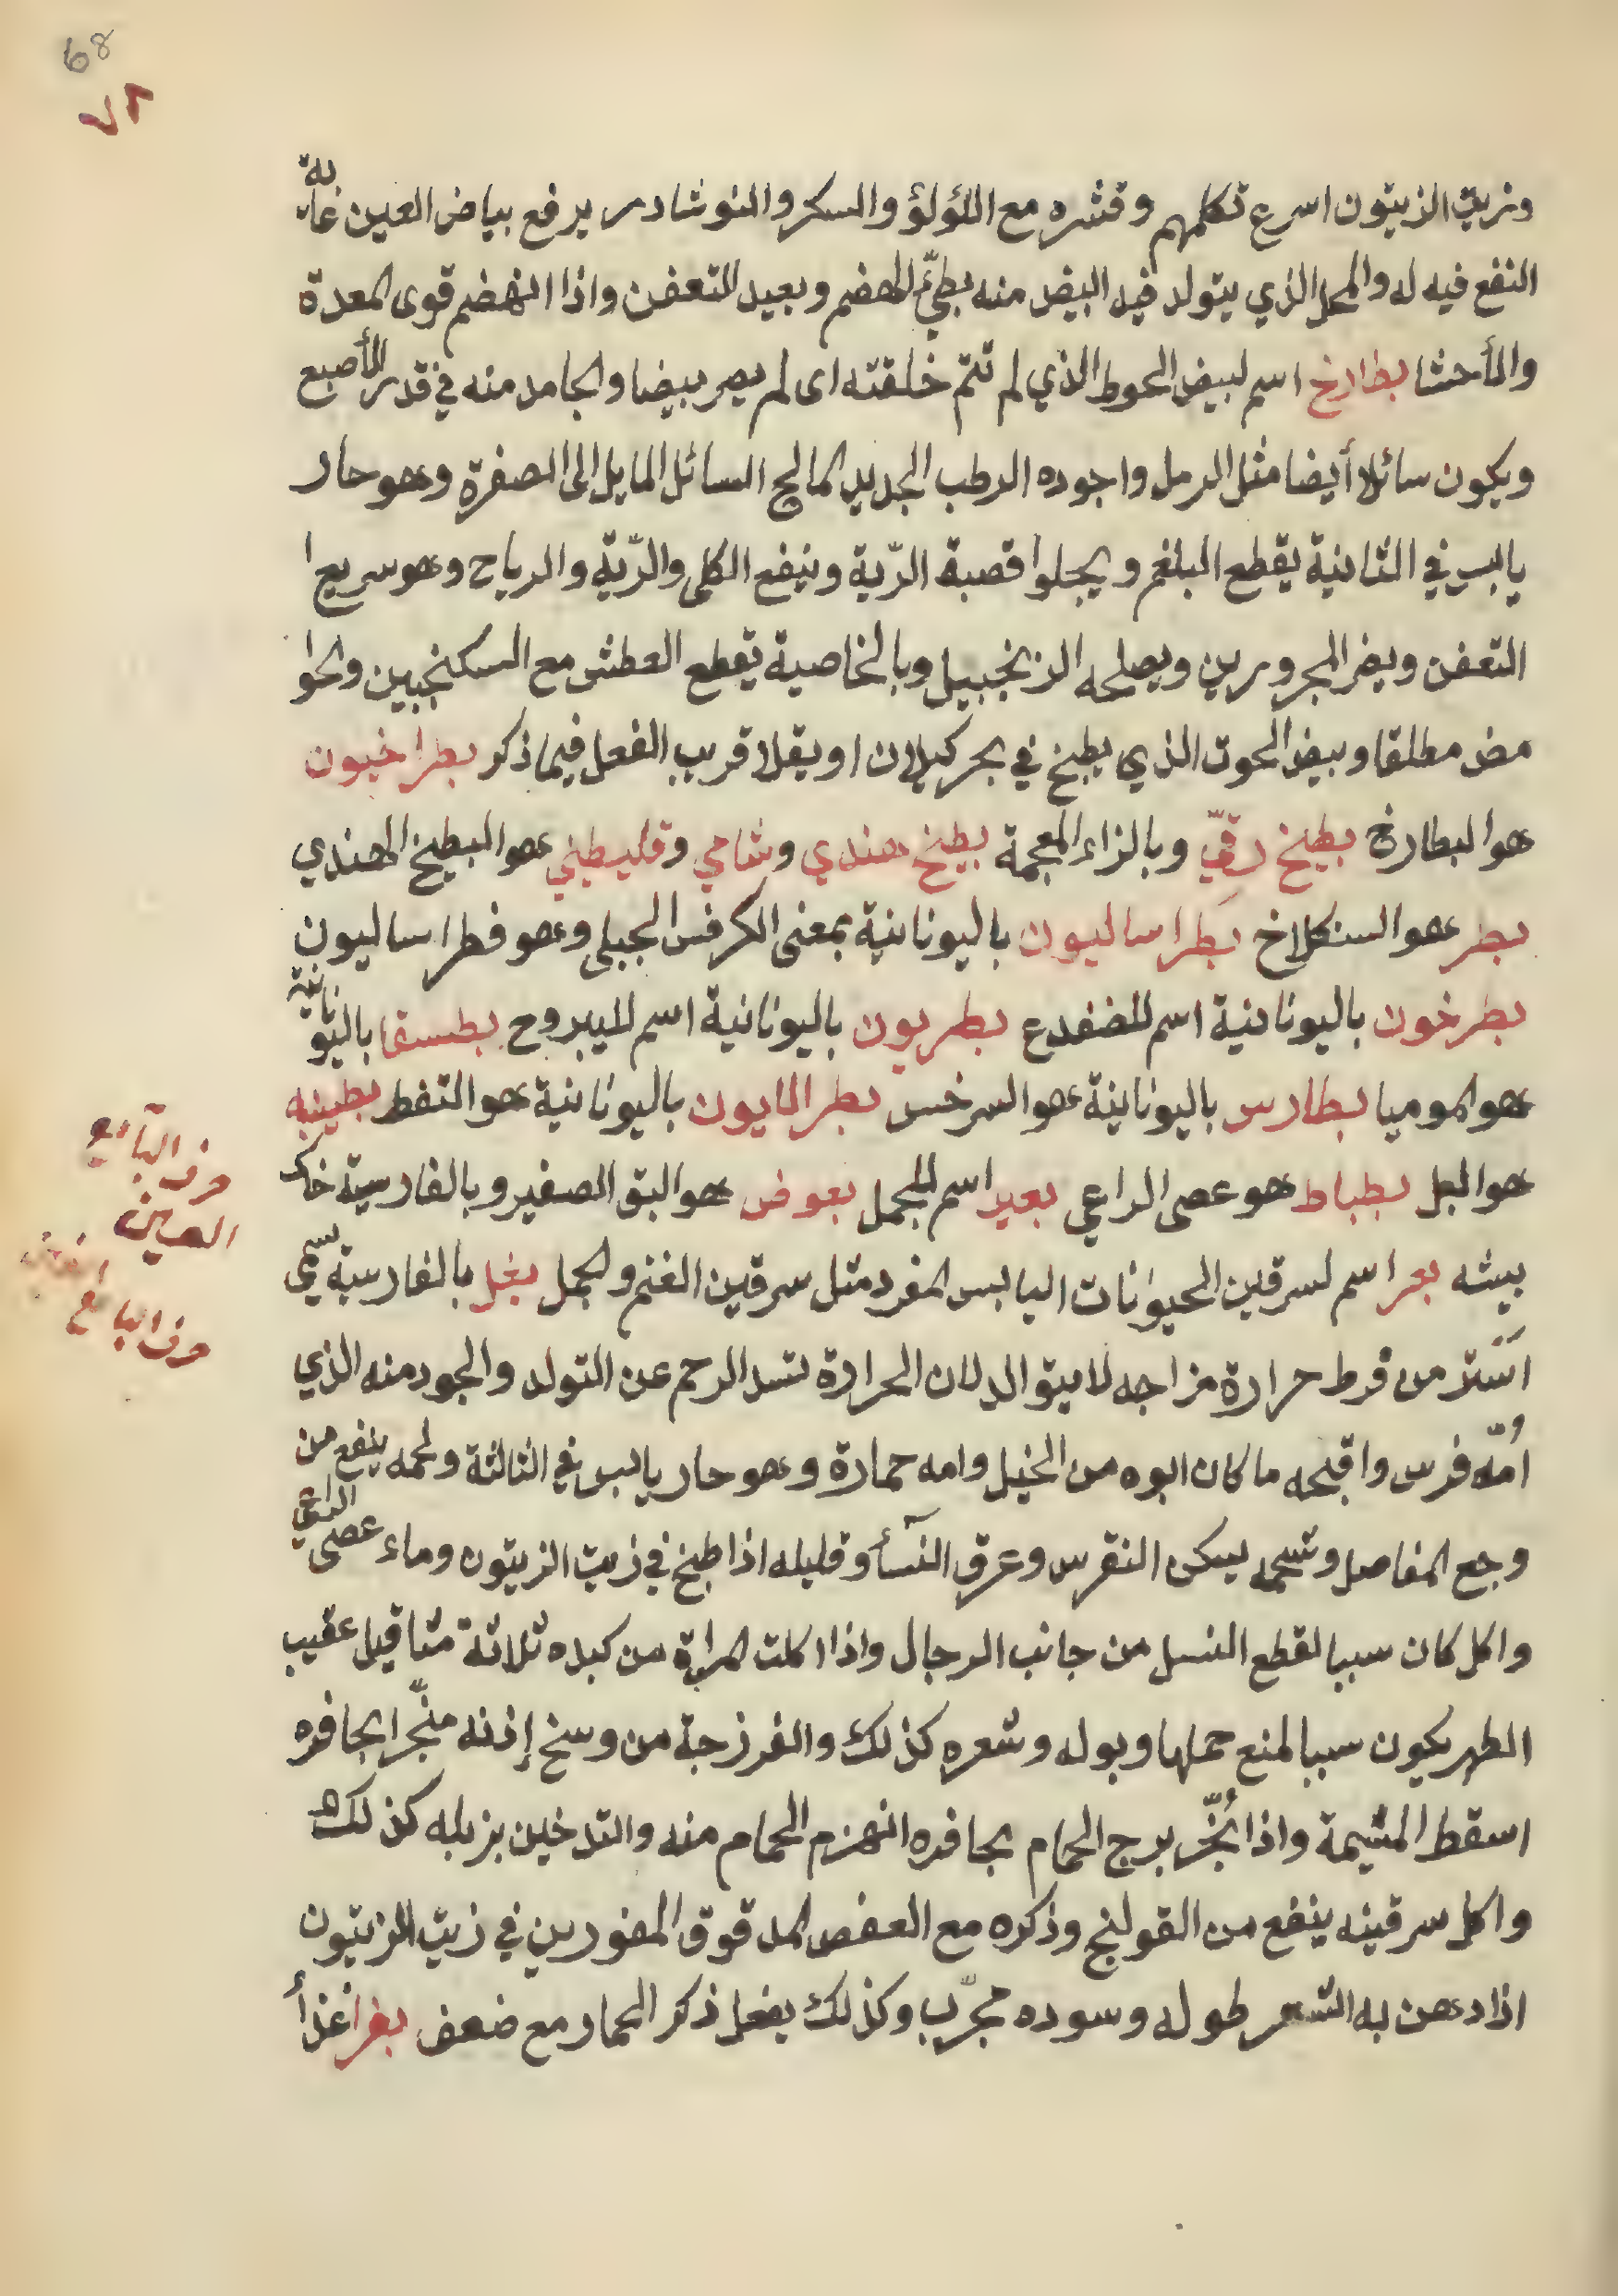 68
٧٢
وزيت الزيتون اسرع تكلمهم وقشره مع اللؤلؤ والسكر والنوشادر يرفع بياض العين غاية
النفع فيه له والمحل الذي يتولد فيه البيض منه بطيئ الهضم وبعيد التعفن واذا انهضم قوى المعدة
والأحشا بطارخ اسم لبيض الحوط الذي لم تتم خلقته اى لم يصر بيضا والجامد منه في قدر الأصبع
ويكون سائلا أيضا مثل الرمل واجوده الرطب الجديد المالح السائل المايل الى الصفرة وهو حار
يابس في الثانية يقطع البلغم ويجلوا قصبة الرّية وينفع الكلى والرّية والرياح وهو سريع
التعفن ويضر المحرورين ويصلحه الزنجبيل وبالخاصية يقطع العطش مع السكنجبين والحوا
مض مطلقا وبيض الحوت الذي يطبخ في بحر كيلان او يقلا قريب الفعل فيما ذكر بطراخيون
هو البطارخ بطيخ رقيّ وبالزاء المعجمة بطيخ هندي وشامي وفليطيني هو البطيخ الهندي
بطر هو السنكلاخ بطراساليون باليونانية بمعنى الكرفس الجبلى وهو فطراساليون
بطرخون باليونانية اسم للضفدع بطريون باليونانية اسم لليبروح بطسقا باليونانية
هو الموميا بطارس باليونانية هو السرخس بطرالايون باليونانية هو النفط بطينيه
هو البل بطباط هو عصى الراعي بعير اسم للجمل بعوض هو البق الصغير وبالفارسية خاك
حرف البآء مع
العين
بيشه بعر اسم لسرقين الحيوانات اليابس المفرد مثل سرقين الغنم والجمل بغل بالفارسية سمى
حرف البا مع
استر من فرط حرارة مزاجه لا يتوالد لان الحرارة تسد الرحم عن التولد والجود منه الذي
اُمّه فرس واقبحه ما كان ابوه من الخيل وامه حمارة وهو حار يابس في الثالثة ولحمه ينفع من
وجع المفاصل وشحمه يسكن النقرس وعرق النسآ وقليله اذا طبخ في زيت الزيتون وماء عصى الراعي
واكل كان سببا لقطع النسل من جانب الرجال واذا اكلت المراة من كبده ثلاثة مثاقيل عقيب
الطهر يكون سببا لمنع حملها وبوله وشعره كذلك والفرزجة من وسخ إذنه منجّرا بحافره
اسقط المشيمة واذا بُخّر برج الحمام بحافره انهزم الحمام منه والتدخين بزبله كذلك
واكل سرقينه ينفع من القولنج وذكره مع العفص المدقوق المغورين في زيت الزيتون
اذا دهن به الشعر طوله وسوده مجرّب وكذلك يفعل ذكر الحمار مع ضعف بغرا غذأ